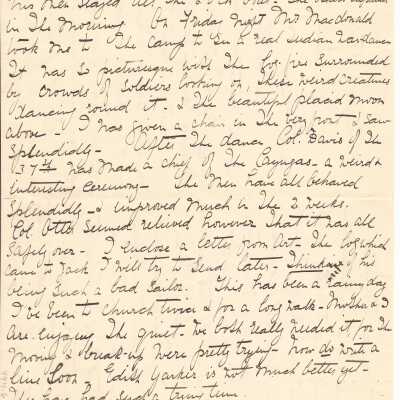 his men stayed till the
in the morning. On Friday night Mr Macdonald
took me to the Camp to see a real Indian war dance
It was so picturesque with the log fire surrounded
by crowds of soldiers looking on, these weird creatures
dancing round it & the beautiful placid moon
above - I was given a chair in the very front & saw
splendidly - After the dance Col. Davis of the
37th was made a chief of the Cayugas - a weird &
interesting ceremony - The men have all behaved
splendidly - & improved much in the 2 weeks.
Col. Otter seemed relieved however that it was all
safely over - I enclose a letter from Art - The log which
came to Jack I will try to send later - Thinking of his
being such a bad sailor. This has been a rainy day
I've been to church twice & for a long walk - Mother & I
are enjoying the quiet - We both really needed it for the
moving & break-up were pretty trying - Now do write a
line soon. Edith Yarker is not much better yet -
They have had such a trying time